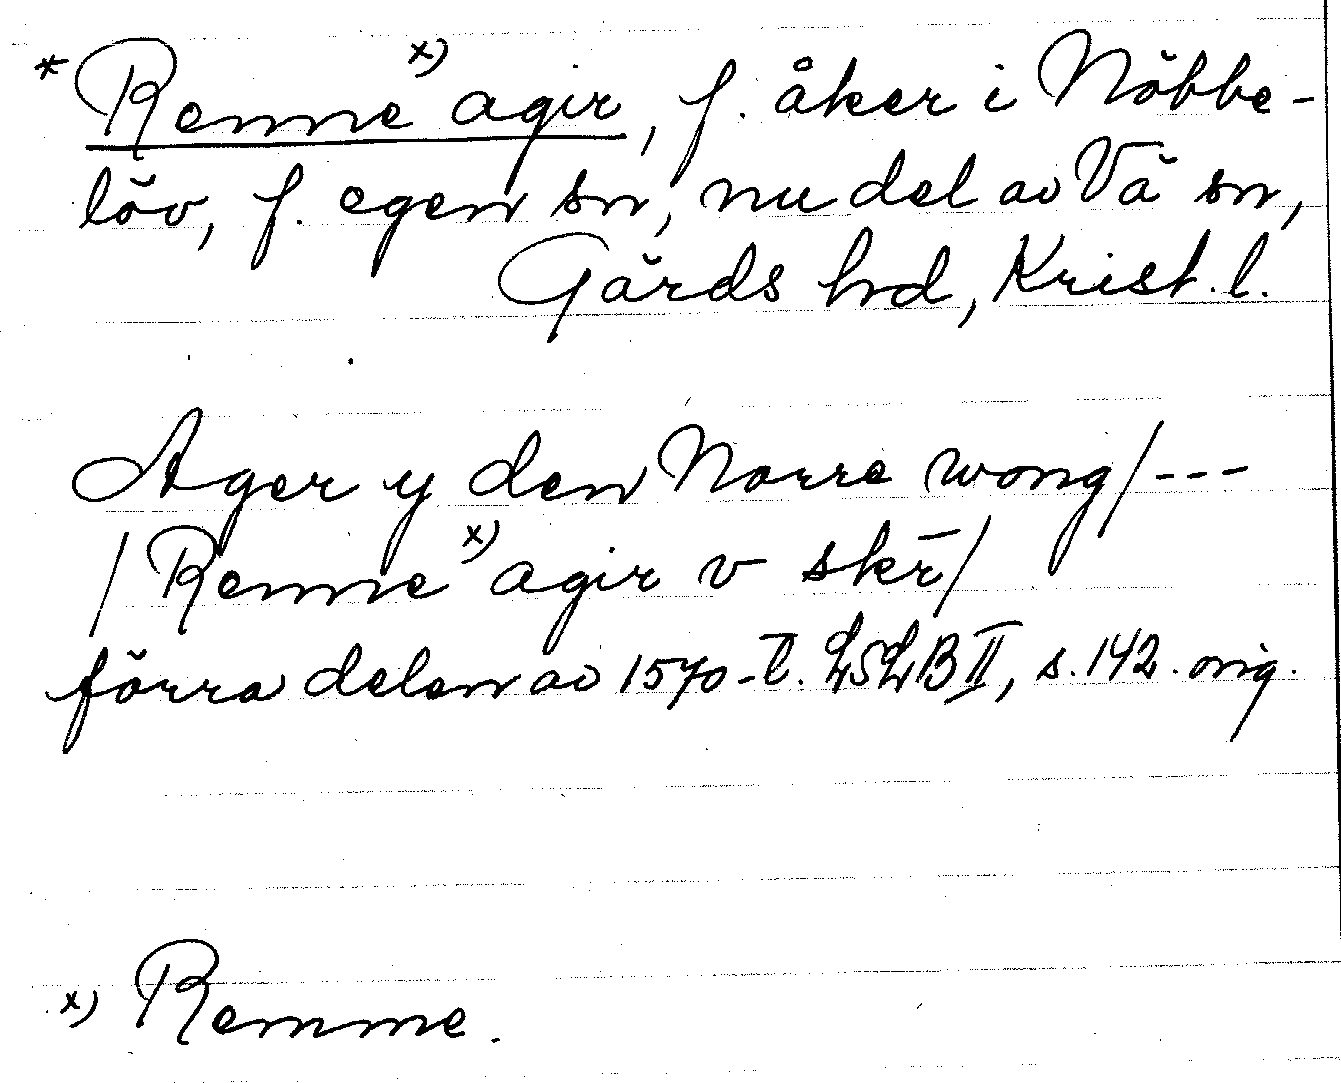 * Renne x) agir, f. åker i Nöbbe-
löv, f. egen sn, nu del av Vä sn,
Gärds hd, Krist. l.
Ager y den Norre wong/---
/Renne x) agir v skr̄/
förra delen av 1570-t. LSLB II, s. 142. orig.
x) Remme.